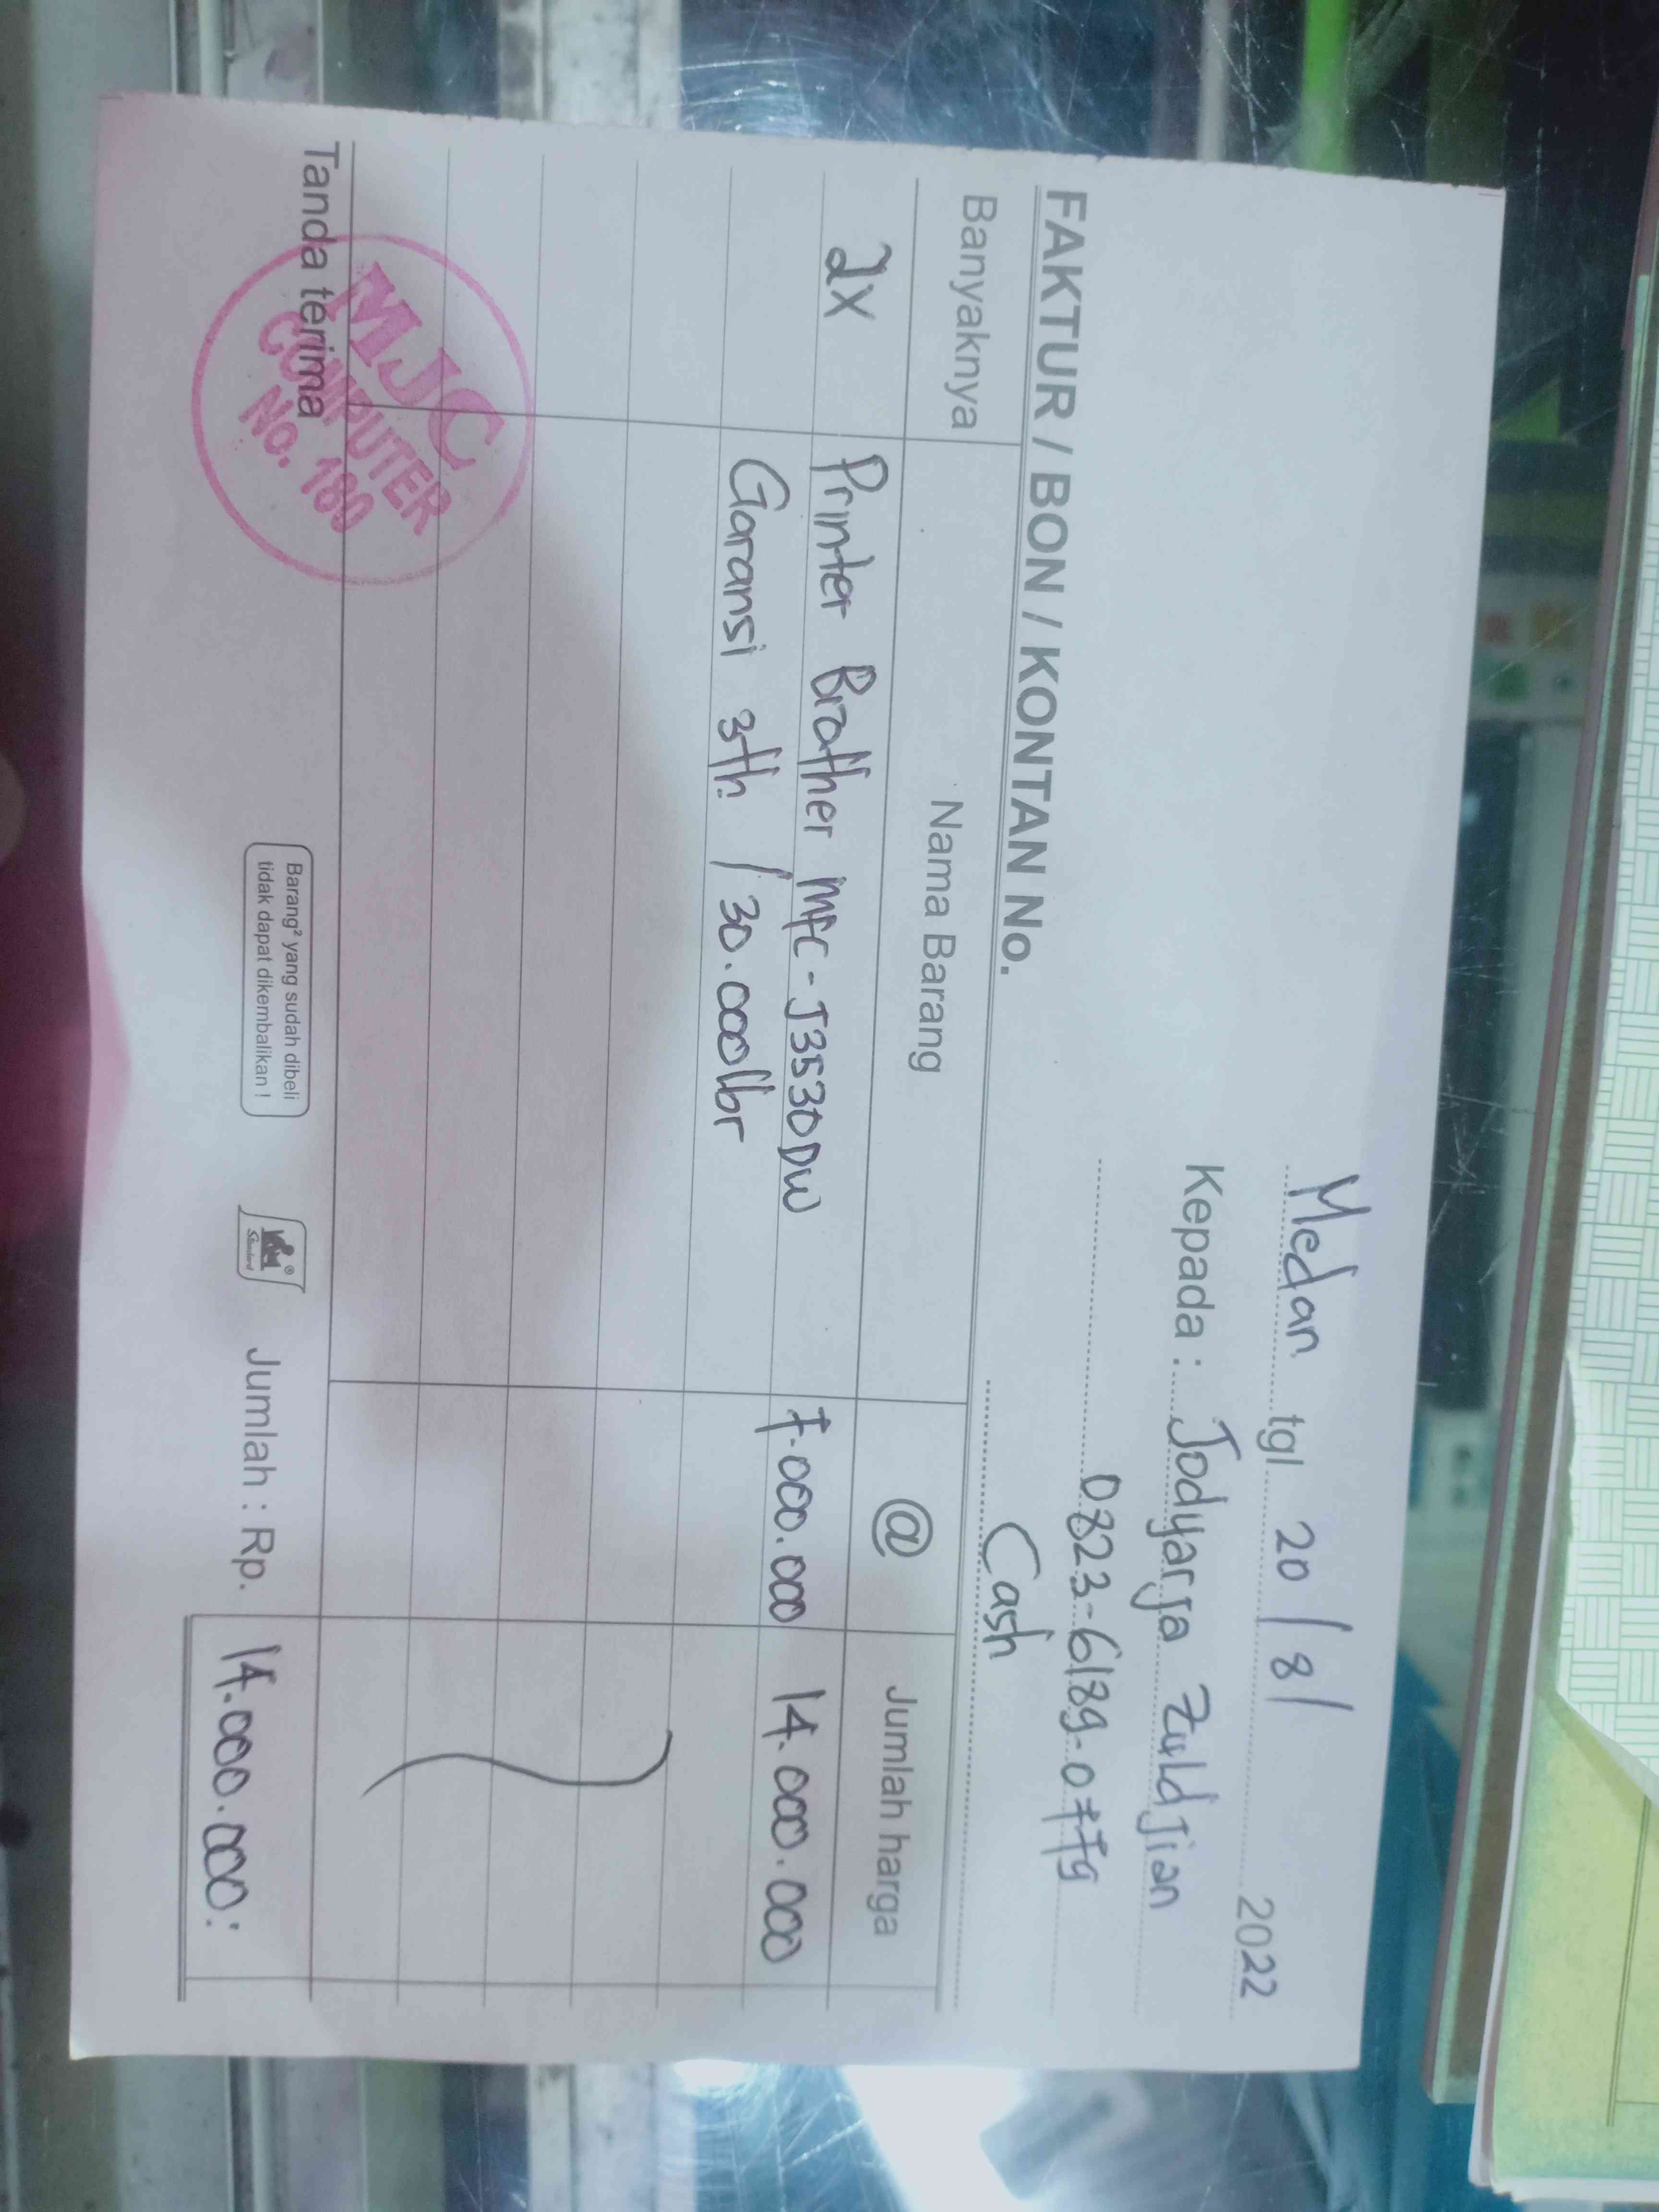 Medan tgl 20/8/ 2022
Kepada : Jodyarja Zuldjian
0823-6189-0779
Cash
FAKTUR / BON / KONTAN No.
Banyaknya Nama Barang @ Jumlah harga
2x Printer Brother MFC-J3530DW 7.000.000 14.000.000
Garansi 3th / 30.000lbr
Tanda terima
MJC
COMPUTER
No. 180
Barang² yang sudah dibeli
tidak dapat dikembalikan !
Jumlah : Rp. 14.000.000: